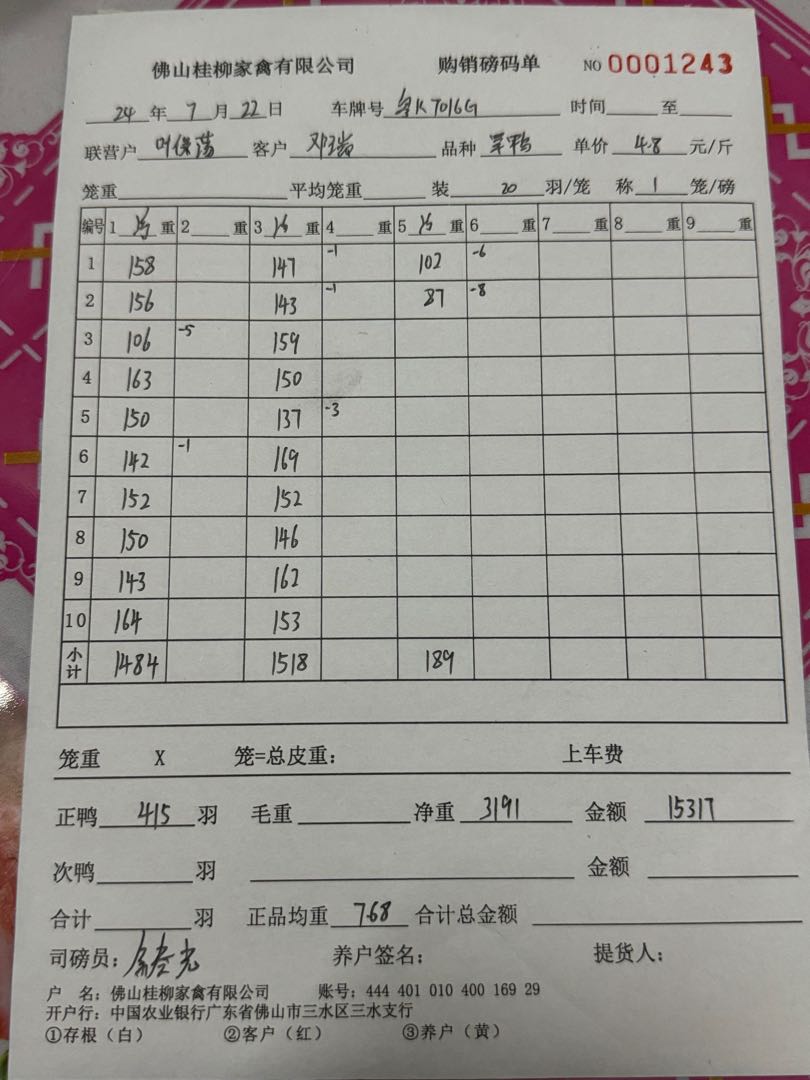 佛山桂柳家禽有限公司 购销磅码单 NO 0001243
24 年 7 月 22 日 车牌号 粤K7016G 时间 至
联营户 叶保荡 客户 邓瑞 品种 单价 4.8 元/斤
笼重 平均笼重 装 20 羽/笼 称 1 笼/磅
编号 1 重 2 重 3 重 4 重 5 重 6 重 7 重 8 重 9 重
1 158 147 -1 102 -6
2 156 143 -1 87 -8
3 106 -5 159
4 163 150
5 150 137 -3
6 142 -1 169
7 152 152
8 150 146
9 143 162
10 164 153
小计 1484 1518 189
笼重 X 笼=总皮重: 上车费
正鸭 415 羽 毛重 净重 3191 金额 15317
次鸭 羽 金额
合计 羽 正品均重 7.68 合计总金额
司磅员: 养户签名: 提货人:
户 名: 佛山桂柳家禽有限公司 账号: 444 401 010 400 169 29
开户行: 中国农业银行广东省佛山市三水区三水支行
①存根(白) ②客户(红) ③养户(黄)